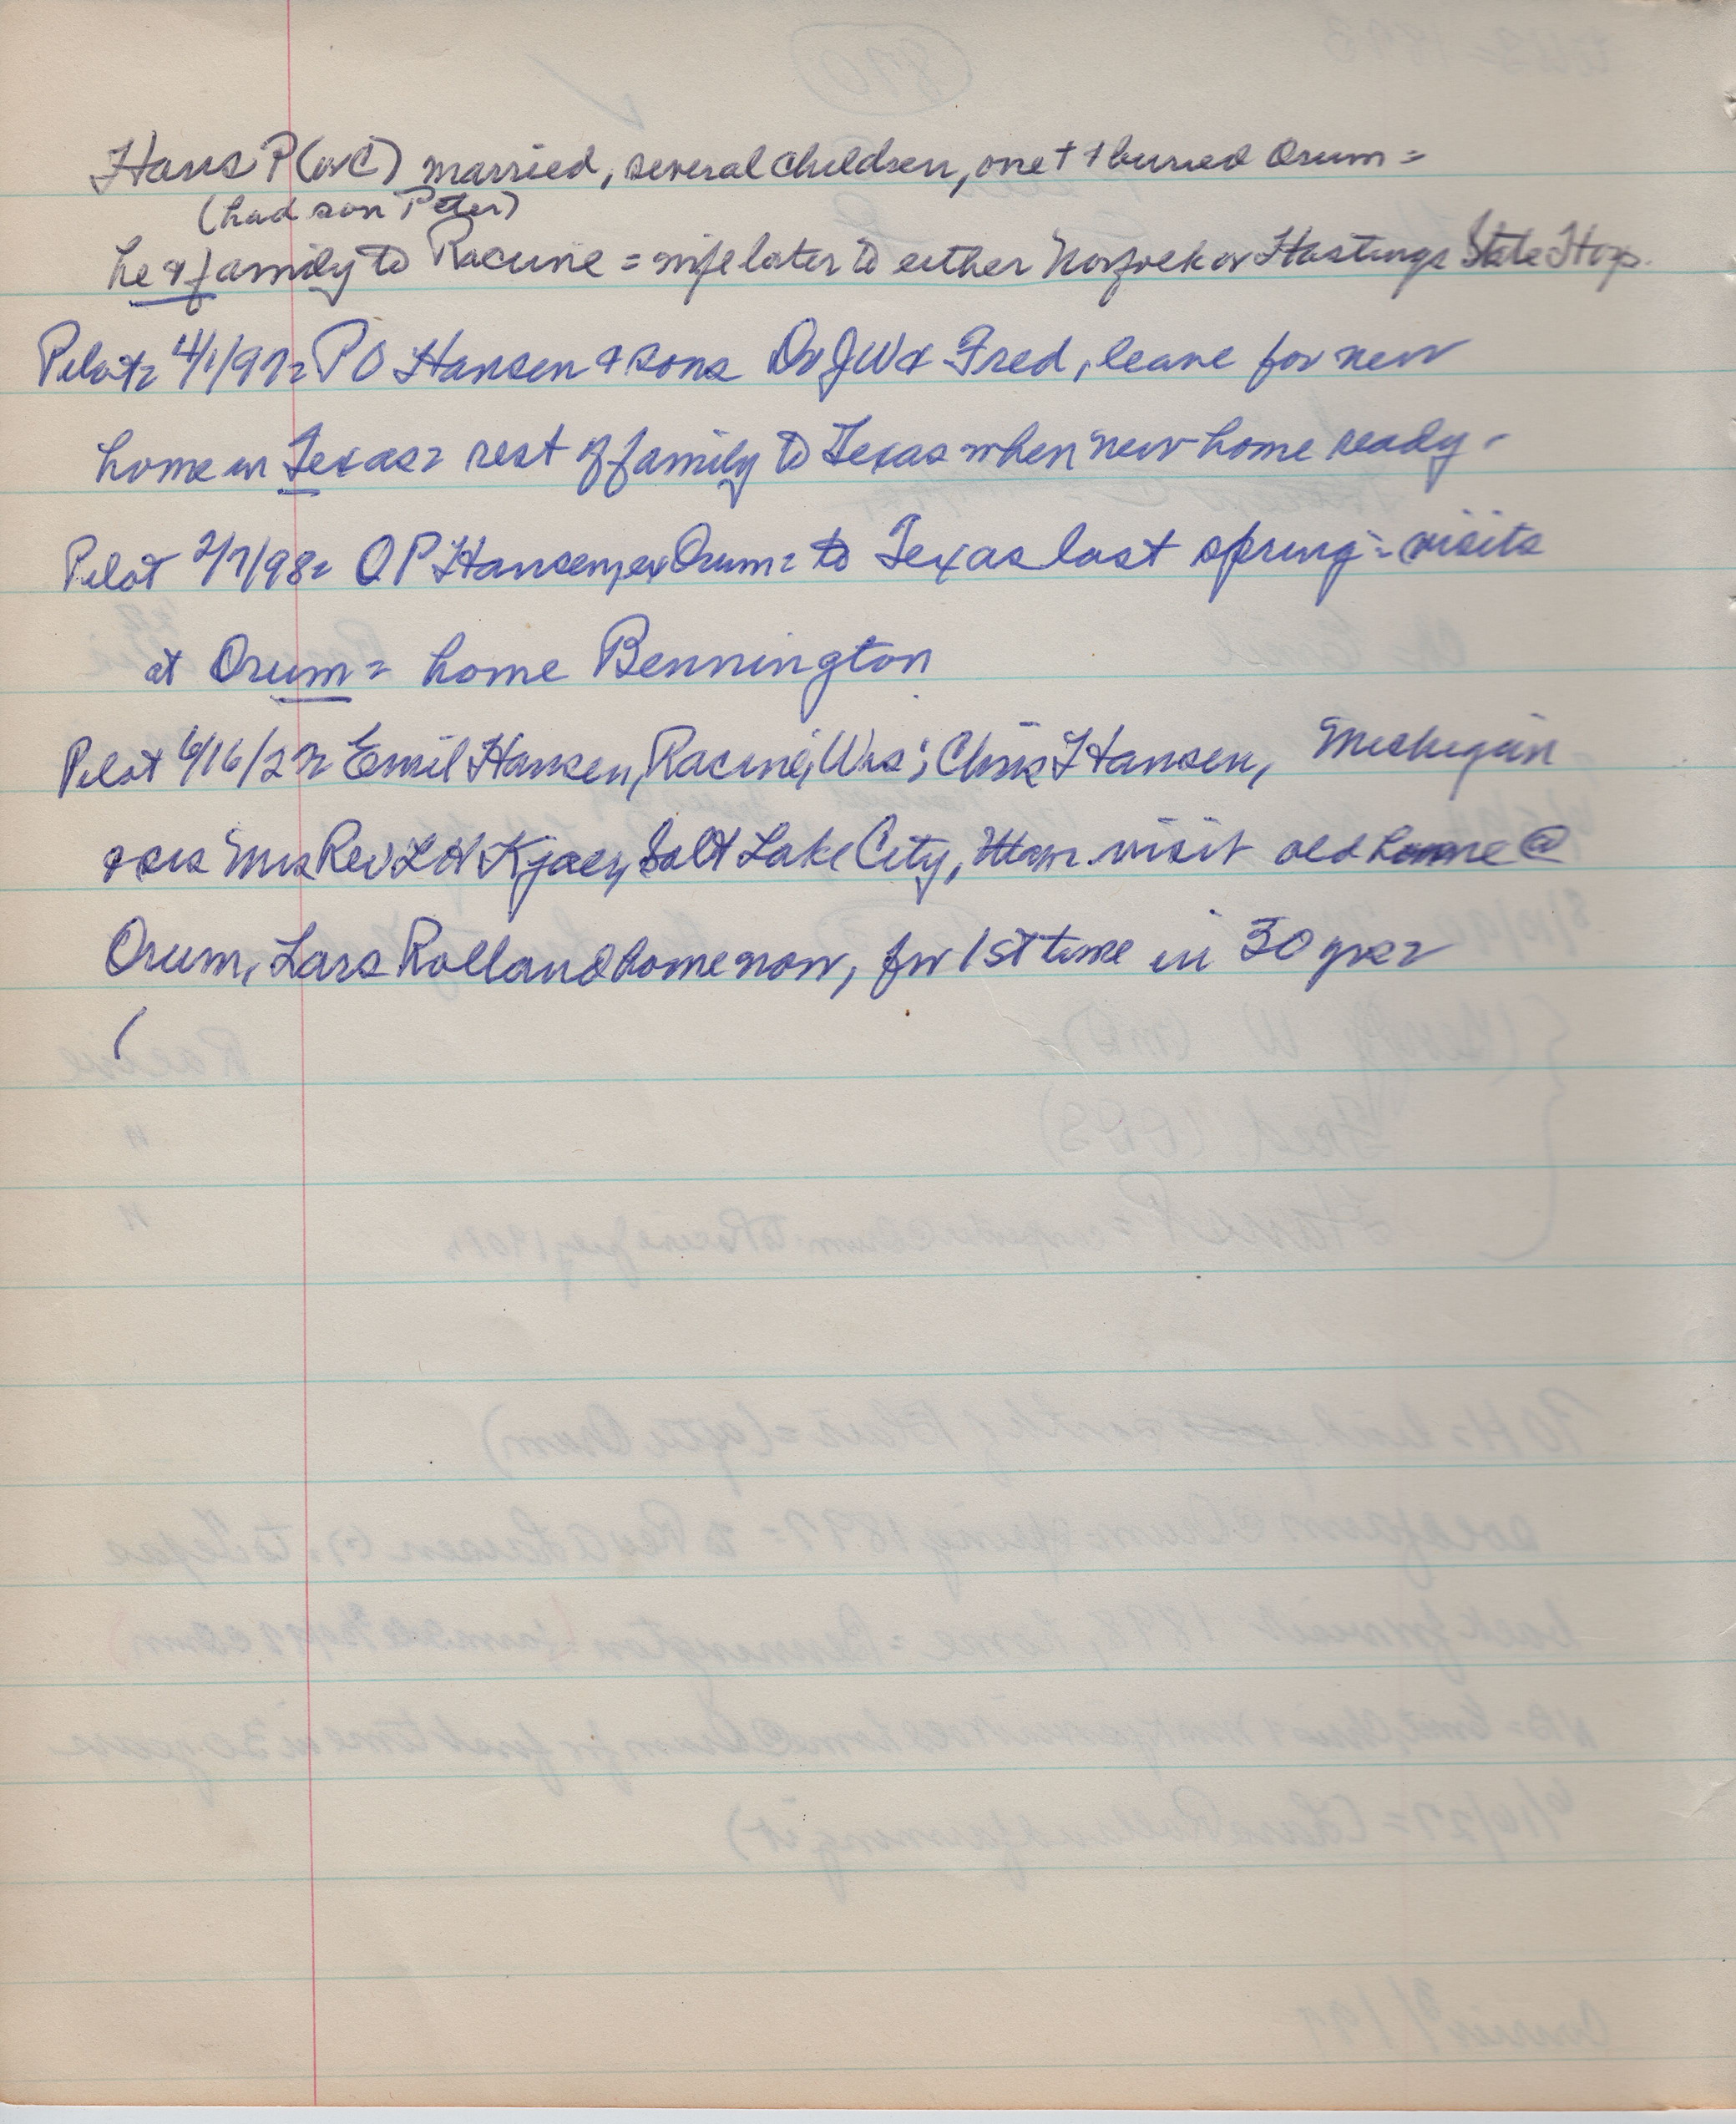 Hans P (or C) married, several children, one † & buried Orum =
(had son Peter)
he & family to Racine = wife later to either Norfolk or Hastings State Hosp.
Pilot = 4/1/97 = P O Hansen & sons Dr J W & Fred, leave for new
home in Texas = rest of family to Texas when new home ready -
Pilot 2/7/98 = O P Hansen, ex Orum = to Texas last spring = visits
at Orum = home Bennington
Pilot 6/16/27 = Emil Hansen, Racine, Wis; Chris Hansen, Michigan
& sis Mrs Rev L H Kjaer, Salt Lake City, Utah = visit old home @
Orum, Lars Rolland home now, for 1st time in 30 yrs =
(